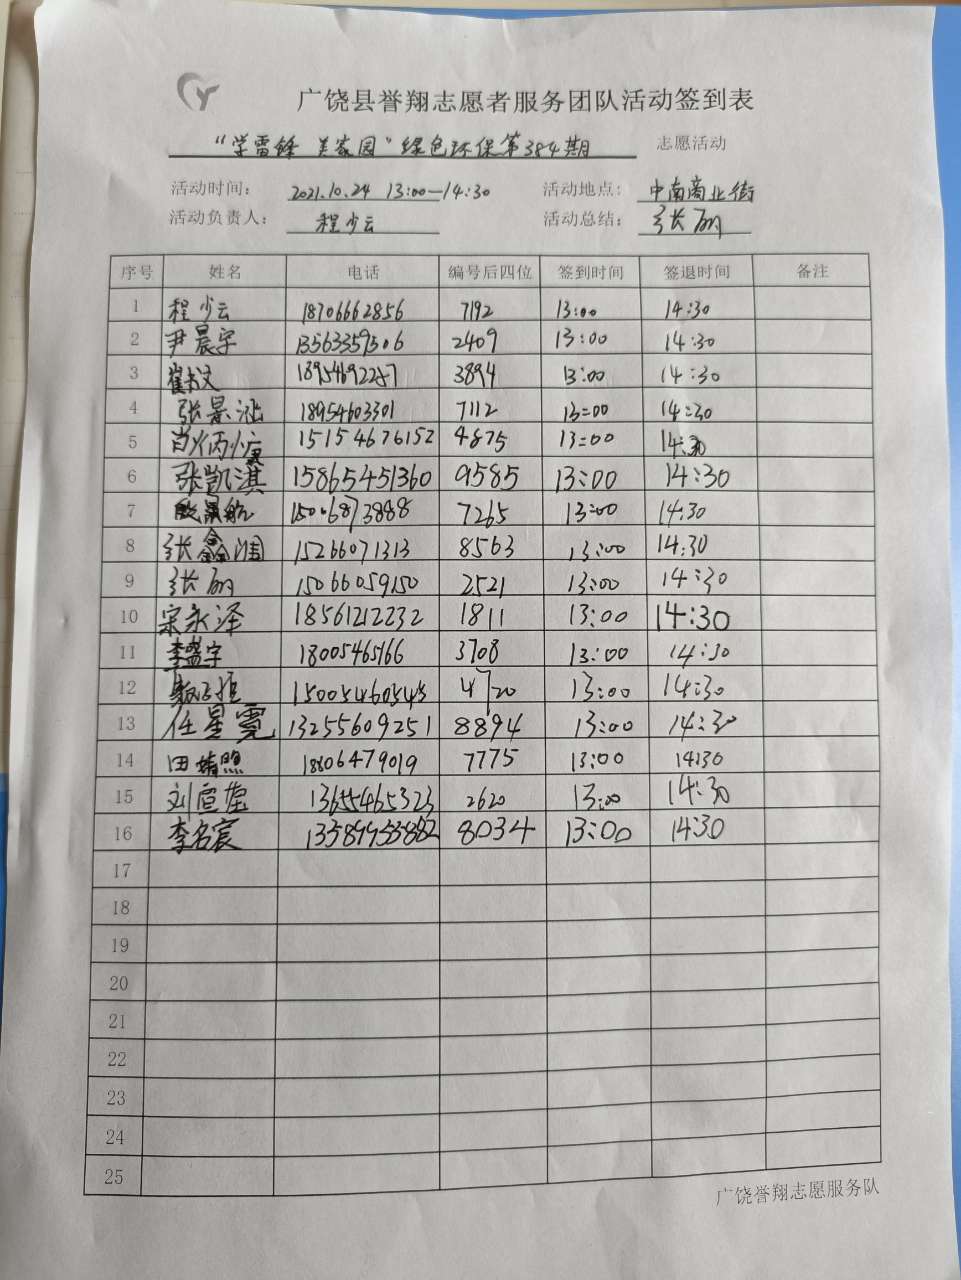 广饶县誉翔志愿者服务团队活动签到表
“学雷锋 美家园”绿色环保第384期 志愿活动
活动时间： 2021.10.24 13:00—14:30 活动地点： 中南商业街
活动负责人： 程少云 活动总结： 张丽
序号 姓名 电话 编号后四位 签到时间 签退时间 备注
1 程少云 18706662856 7192 13:00 14:30
2 尹晨宇 13563359506 2409 13:00 14:30
3 18954692257 3894 13:00 14:30
4 张景 18954603301 7112 13:00 14:30
5 15154676152 4875 13:00 14:30
6 张凯淇 15865451360 9585 13:00 14:30
7 15006873888 7265 13:00 14:30
8 张鑫润 15266071313 8563 13:00 14:30
9 张丽 15066059150 2521 13:00 14:30
10 宋永泽 18561212232 1811 13:00 14:30
11 李喆宇 18005465166 3708 13:00 14:30
12 15005460545 4720 13:00 14:30
13 任星霓 13255609251 8894 13:00 14:30
14 田靖照 18806479019 7775 13:00 14:30
15 刘 13655465323 2620 13:00 14:30
16 李名宸 13589953882 8034 13:00 14:30
17
18
19
20
21
22
23
24
25
广饶誉翔志愿服务队